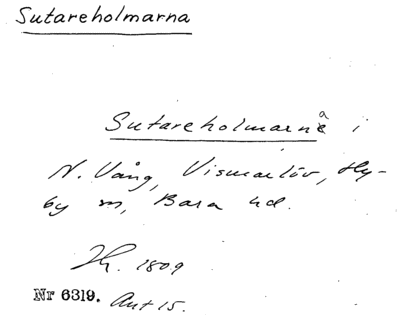 Sutareholmarna
Sutareholmarna i
N. Vång, Vismarlöv, Hy-
by sn, Bara hd.
1809
Nr 6319. Ant 15.